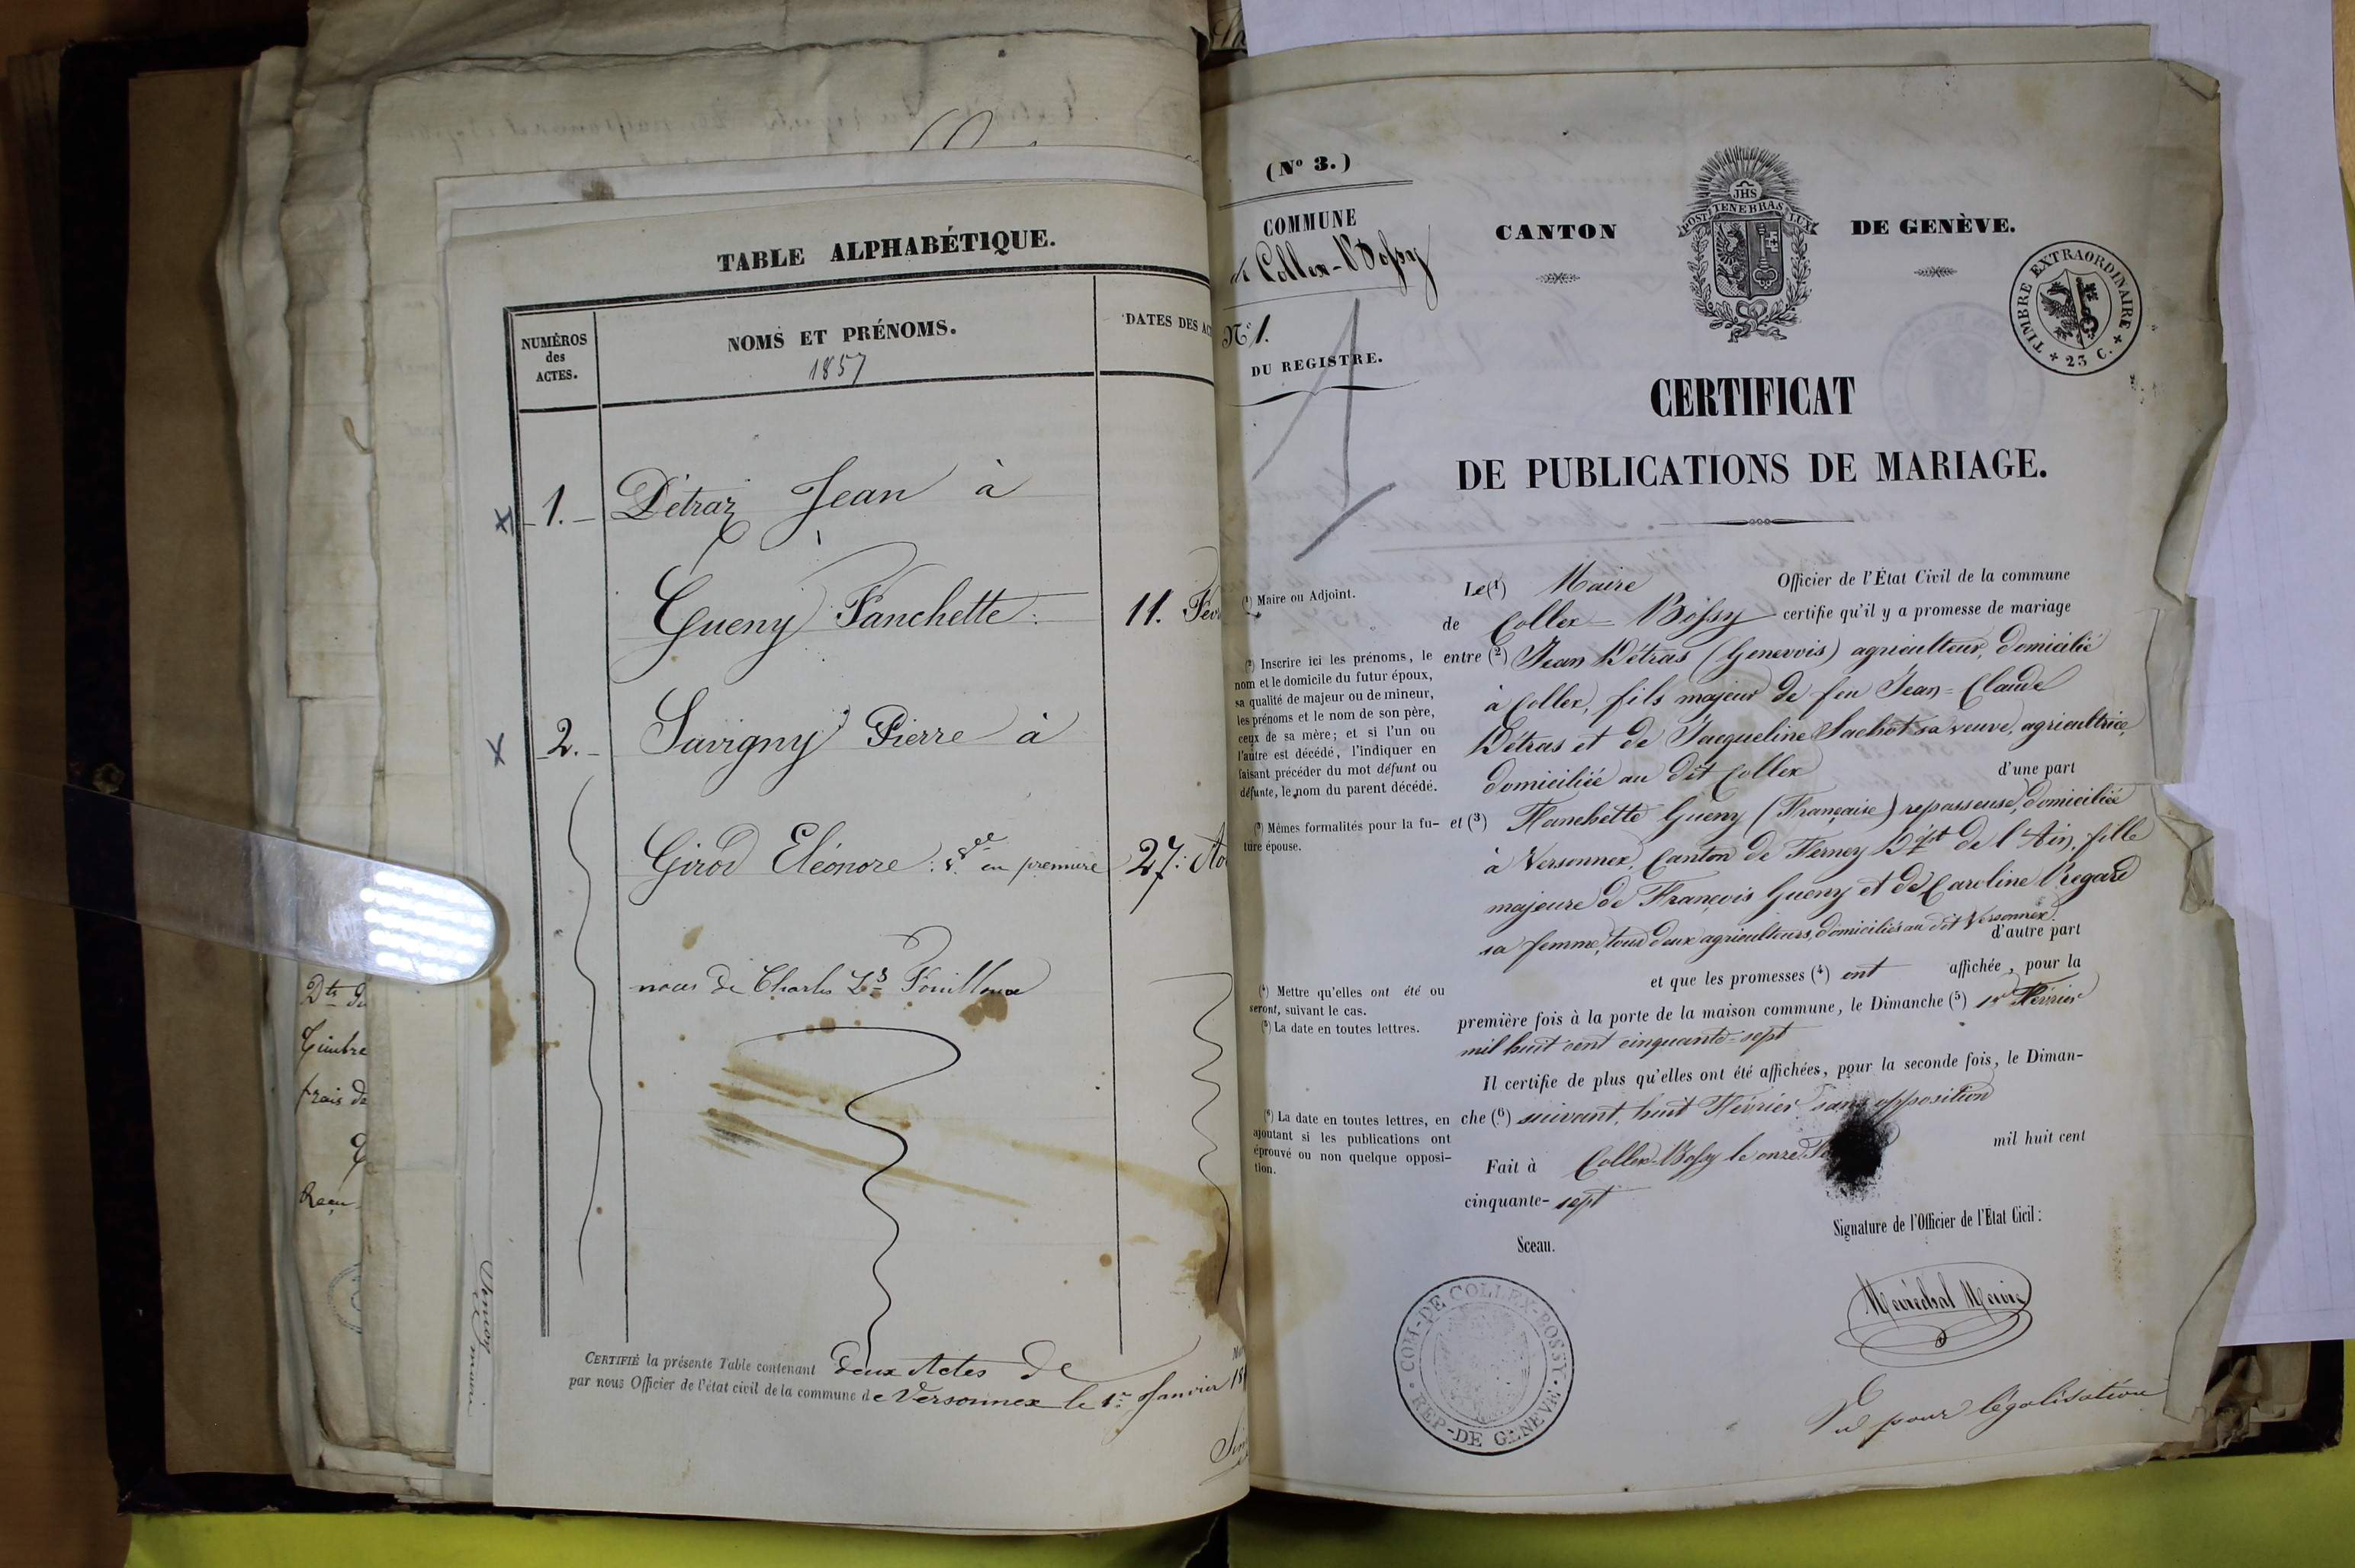 TABLE ALPHABÉTIQUE.
NUMÉROS
des
ACTES.
NOMS ET PRÉNOMS.
1857
DATES DES AC
1. Détraz Jean à
Gueny Fanchette 11. Fév
2. Savigny Pierre à
Girod Eléonore en première 27
noces de Charles Fouilloux
CERTIFIÉ la présente Table contenant deux Actes de
par nous Officier de l'état civil de la commune de Versonnex le 1er Janvier 18
Dts du
Timbre
frais de
Reçu
(No 3.)
COMMUNE
de Collex-Bossy
No 1.
DU REGISTRE.
1
CANTON
DE GENÈVE.
JHS
POST TENEBRAS LUX
TIMBRE EXTRAORDINAIRE
25 C.
CERTIFICAT
DE PUBLICATIONS DE MARIAGE.
(1) Maire ou Adjoint.
(2) Inscrire ici les prénoms, le
nom et le domicile du futur époux,
sa qualité de majeur ou de mineur,
les prénoms et le nom de son père,
ceux de sa mère; et si l'un ou
l'autre est décédé, l'indiquer en
faisant précéder du mot défunt ou
défunte, le nom du parent décédé.
(3) Mêmes formalités pour la fu-
ture épouse.
(4) Mettre qu'elles ont été ou
seront, suivant le cas.
(5) La date en toutes lettres.
(6) La date en toutes lettres, en
ajoutant si les publications ont
éprouvé ou non quelque opposi-
tion.
Le (1) Maire Officier de l'État Civil de la commune
de Collex-Bossy certifie qu'il y a promesse de mariage
entre (2) Jean Détras (Genevois) agriculteur, domicilié
à Collex, fils majeur de feu Jean-Claude
Détras et de Jacqueline Sachot sa veuve, agricultrice,
domiciliée au dit Collex d'une part
et (3) Fanchette Gueny (Française) repasseuse, domiciliée
à Versonnex, Canton de Ferney Dépt de l'Ain, fille
majeure de François Gueny et de Caroline Regard
sa femme, tous deux agriculteurs, domiciliés au dit Versonnex.
d'autre part
et que les promesses (4) ont affichée, pour la
première fois à la porte de la maison commune, le Dimanche (5) 1er Février
mil huit cent cinquante-sept
Il certifie de plus qu'elles ont été affichées, pour la seconde fois, le Diman-
che (6) suivant, huit Février sans opposition
Fait à Collex-Bossy le onze mil huit cent
cinquante-sept
Sceau.
Signature de l'Officier de l'État Cicil :
COM-DE COLLEX-BOSSY
REP-DE GENÈVE
Maréchal Maire
Vu pour légalisation